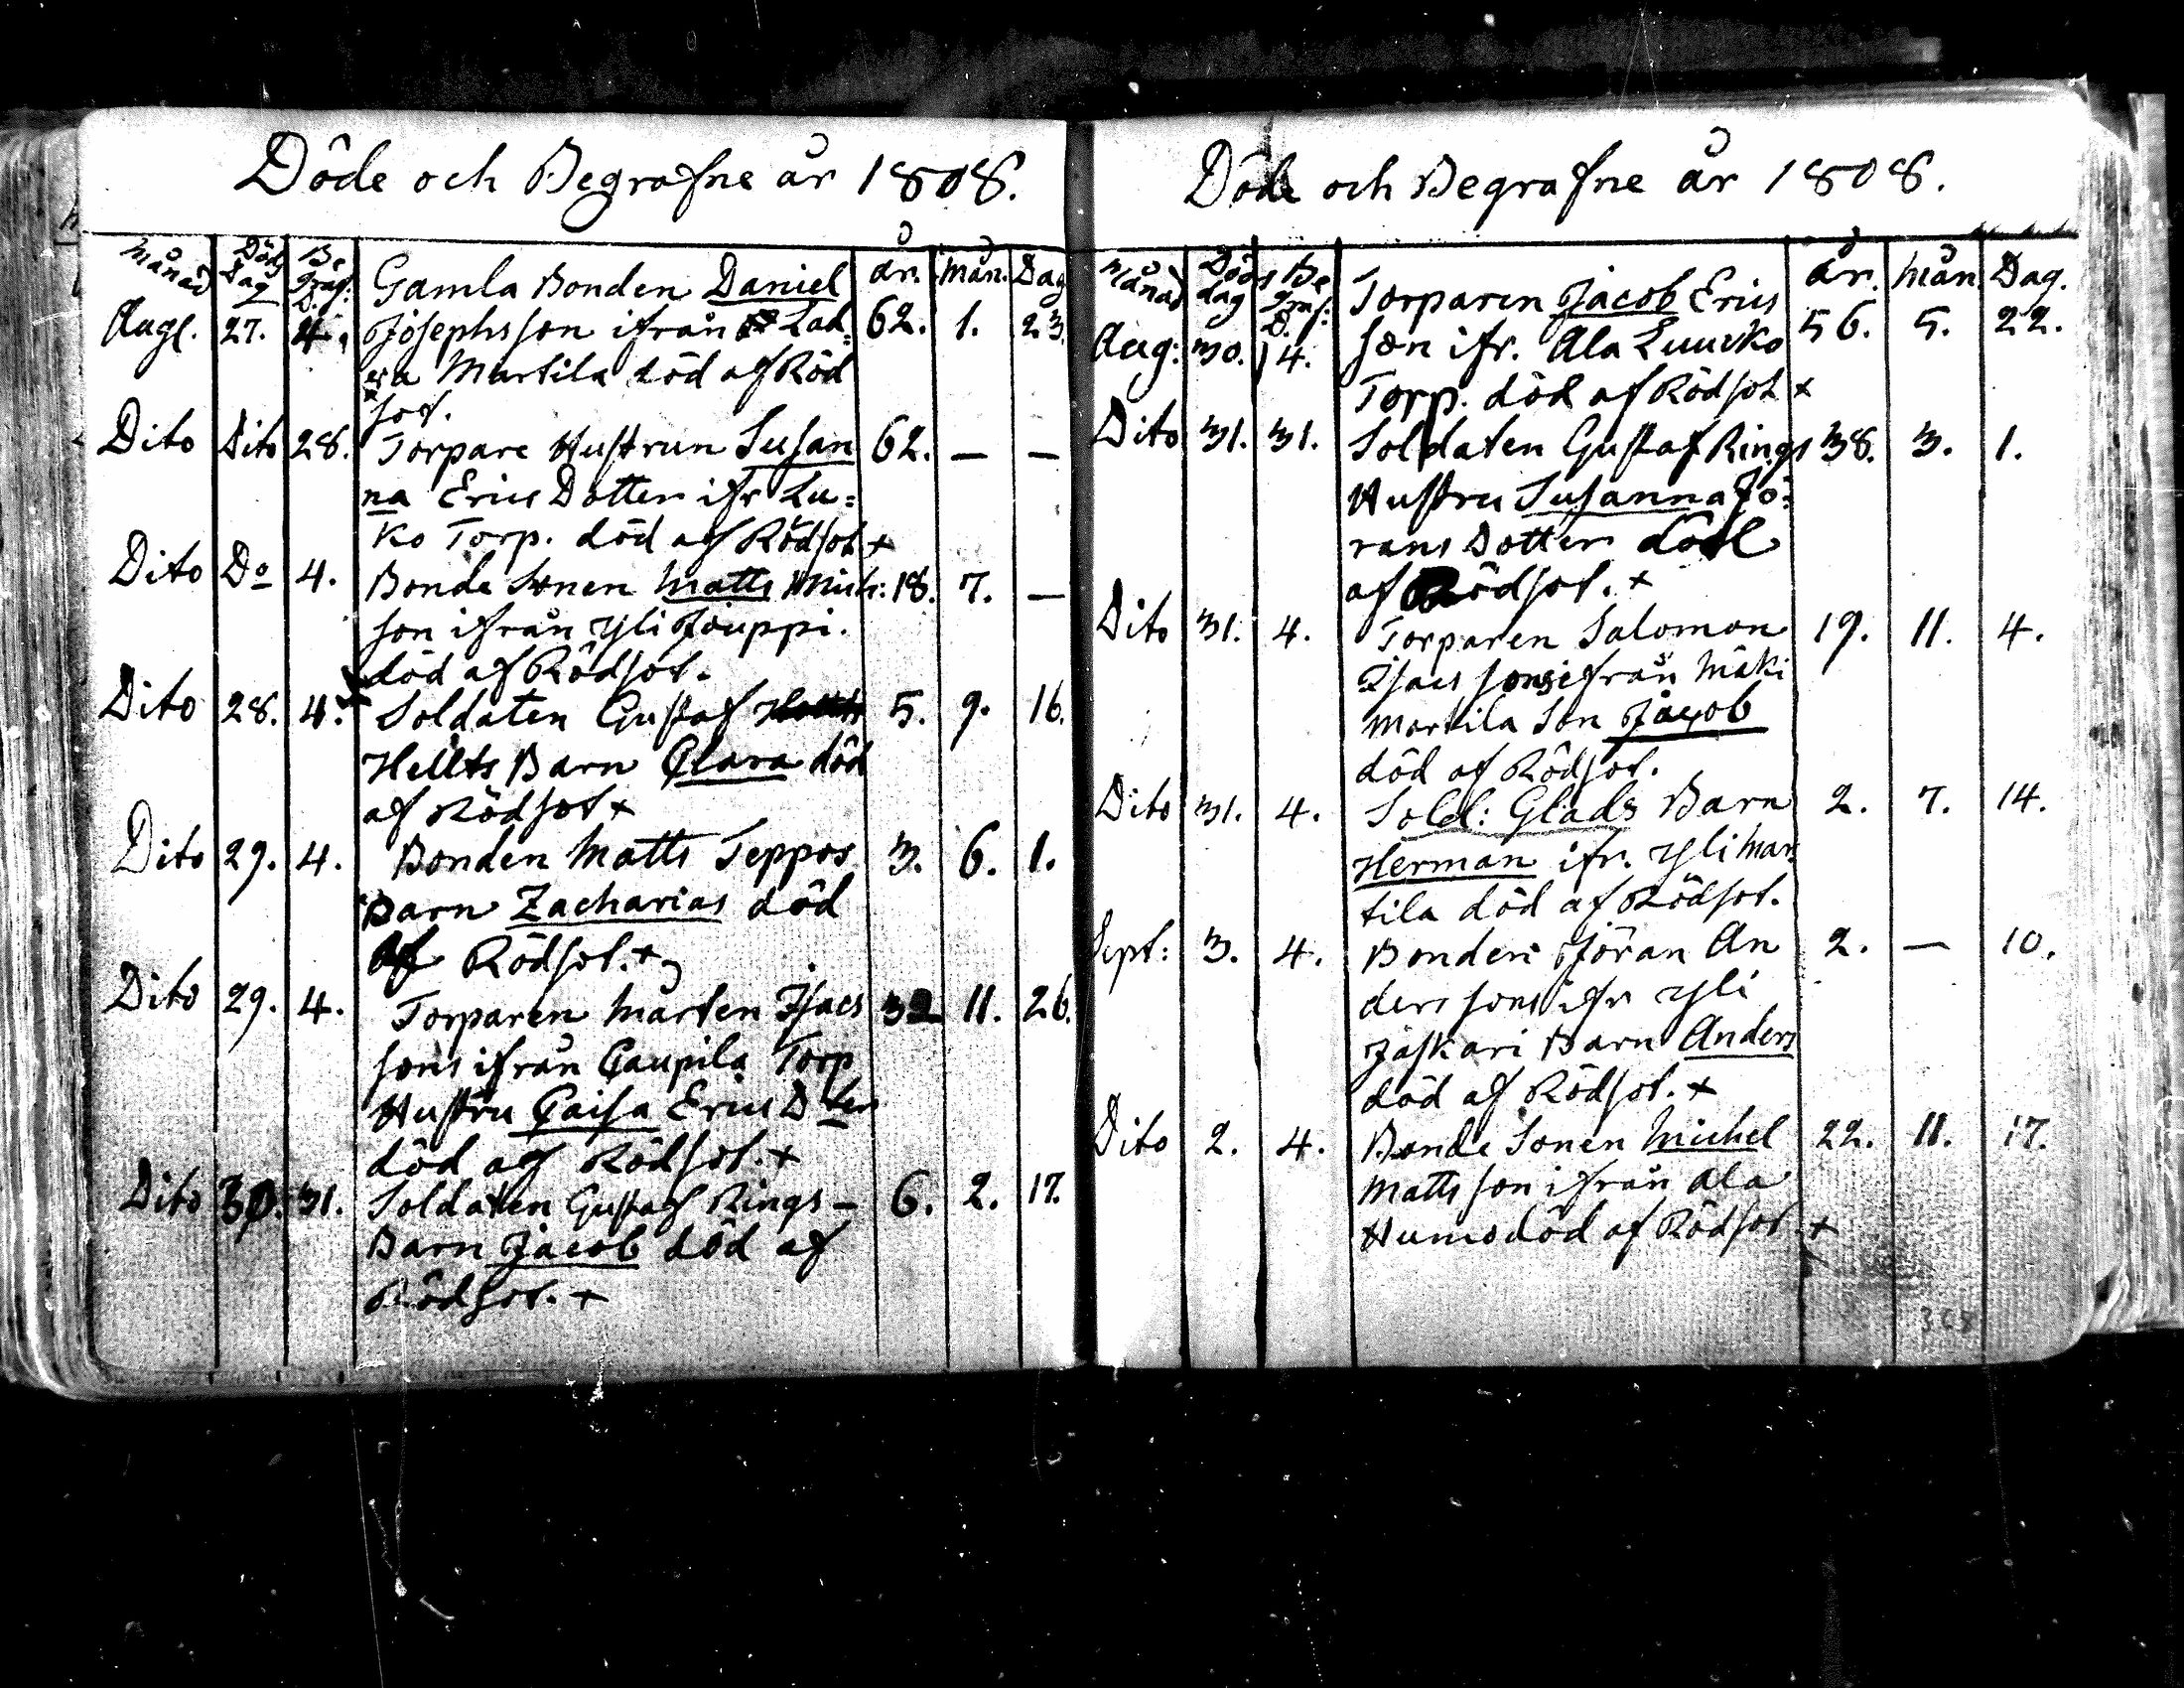 Döde och Begrafne år 1808.
Månad Döds Dag Be Graf: D. år. Mån. Dag
Gamla Bonden Daniel
Augl. 27. 4. Josephsson ifrån Lad= 62. 1. 23.
era Martila död af Röd
sot.
Dito Dito 28. Torpare Hustrun Susan 62. — —
na Erics Dotter ifr Lu=
ko Torp. död af Rödsot +
Dito Do 4. Bonde Sonen Matts Mich: 18. 7. —
son ifrån Yli Jouppi.
död af Rödsot.
Dito 28. 4. Soldaten Gustaf 5. 9. 16.
Hellts Barn Clara död
af Rödsot +
Dito 29. 4. Bonden Matts Teppos 3. 6. 1.
Barn Zacharias död
af Rödsot. +
Dito 29. 4. Torparen Mårten Isacs 32 11. 26.
sons ifrån Caupila Torp
Hustru Caisa Erics Dter
död af Rödsot. +
Dito 30. 31. Soldaten Gustaf Rings – 6. 2. 17.
Barn Jacob död af
Rödsot. +
Döde och Begrafne år 1808.
Månad Döds dag Be Graf: D. år. Mån. Dag.
Torparen Jacob Erics
Aug: 30. 4. son ifr. Ala Luucko 56. 5. 22.
Torp. död af Rödsot +
Dito 31. 31. Soldaten Gustaf Rings 38. 3. 1.
Hustru Susanna Jö=
rans Dotter död
af Rödsot. +
Dito 31. 4. Torparen Salomon 19. 11. 4.
Isacs sons ifrån Mäki
Martila Son Jacob
död af Rödsot.
Dito 31. 4. Sold: Glads Barn 2. 7. 14.
Herman ifr. Yli Mar=
tila död af Rödsot.
Sept: 3. 4. Bonden Jöran An 2. — 10.
ders sons ifr Yli
Jäskari Barn Anders
död af Rödsot. +
Dito 2. 4. Bonde Sonen Michel 22. 11. 17.
Matts son ifrån Ala
Humo död af Rödsot +